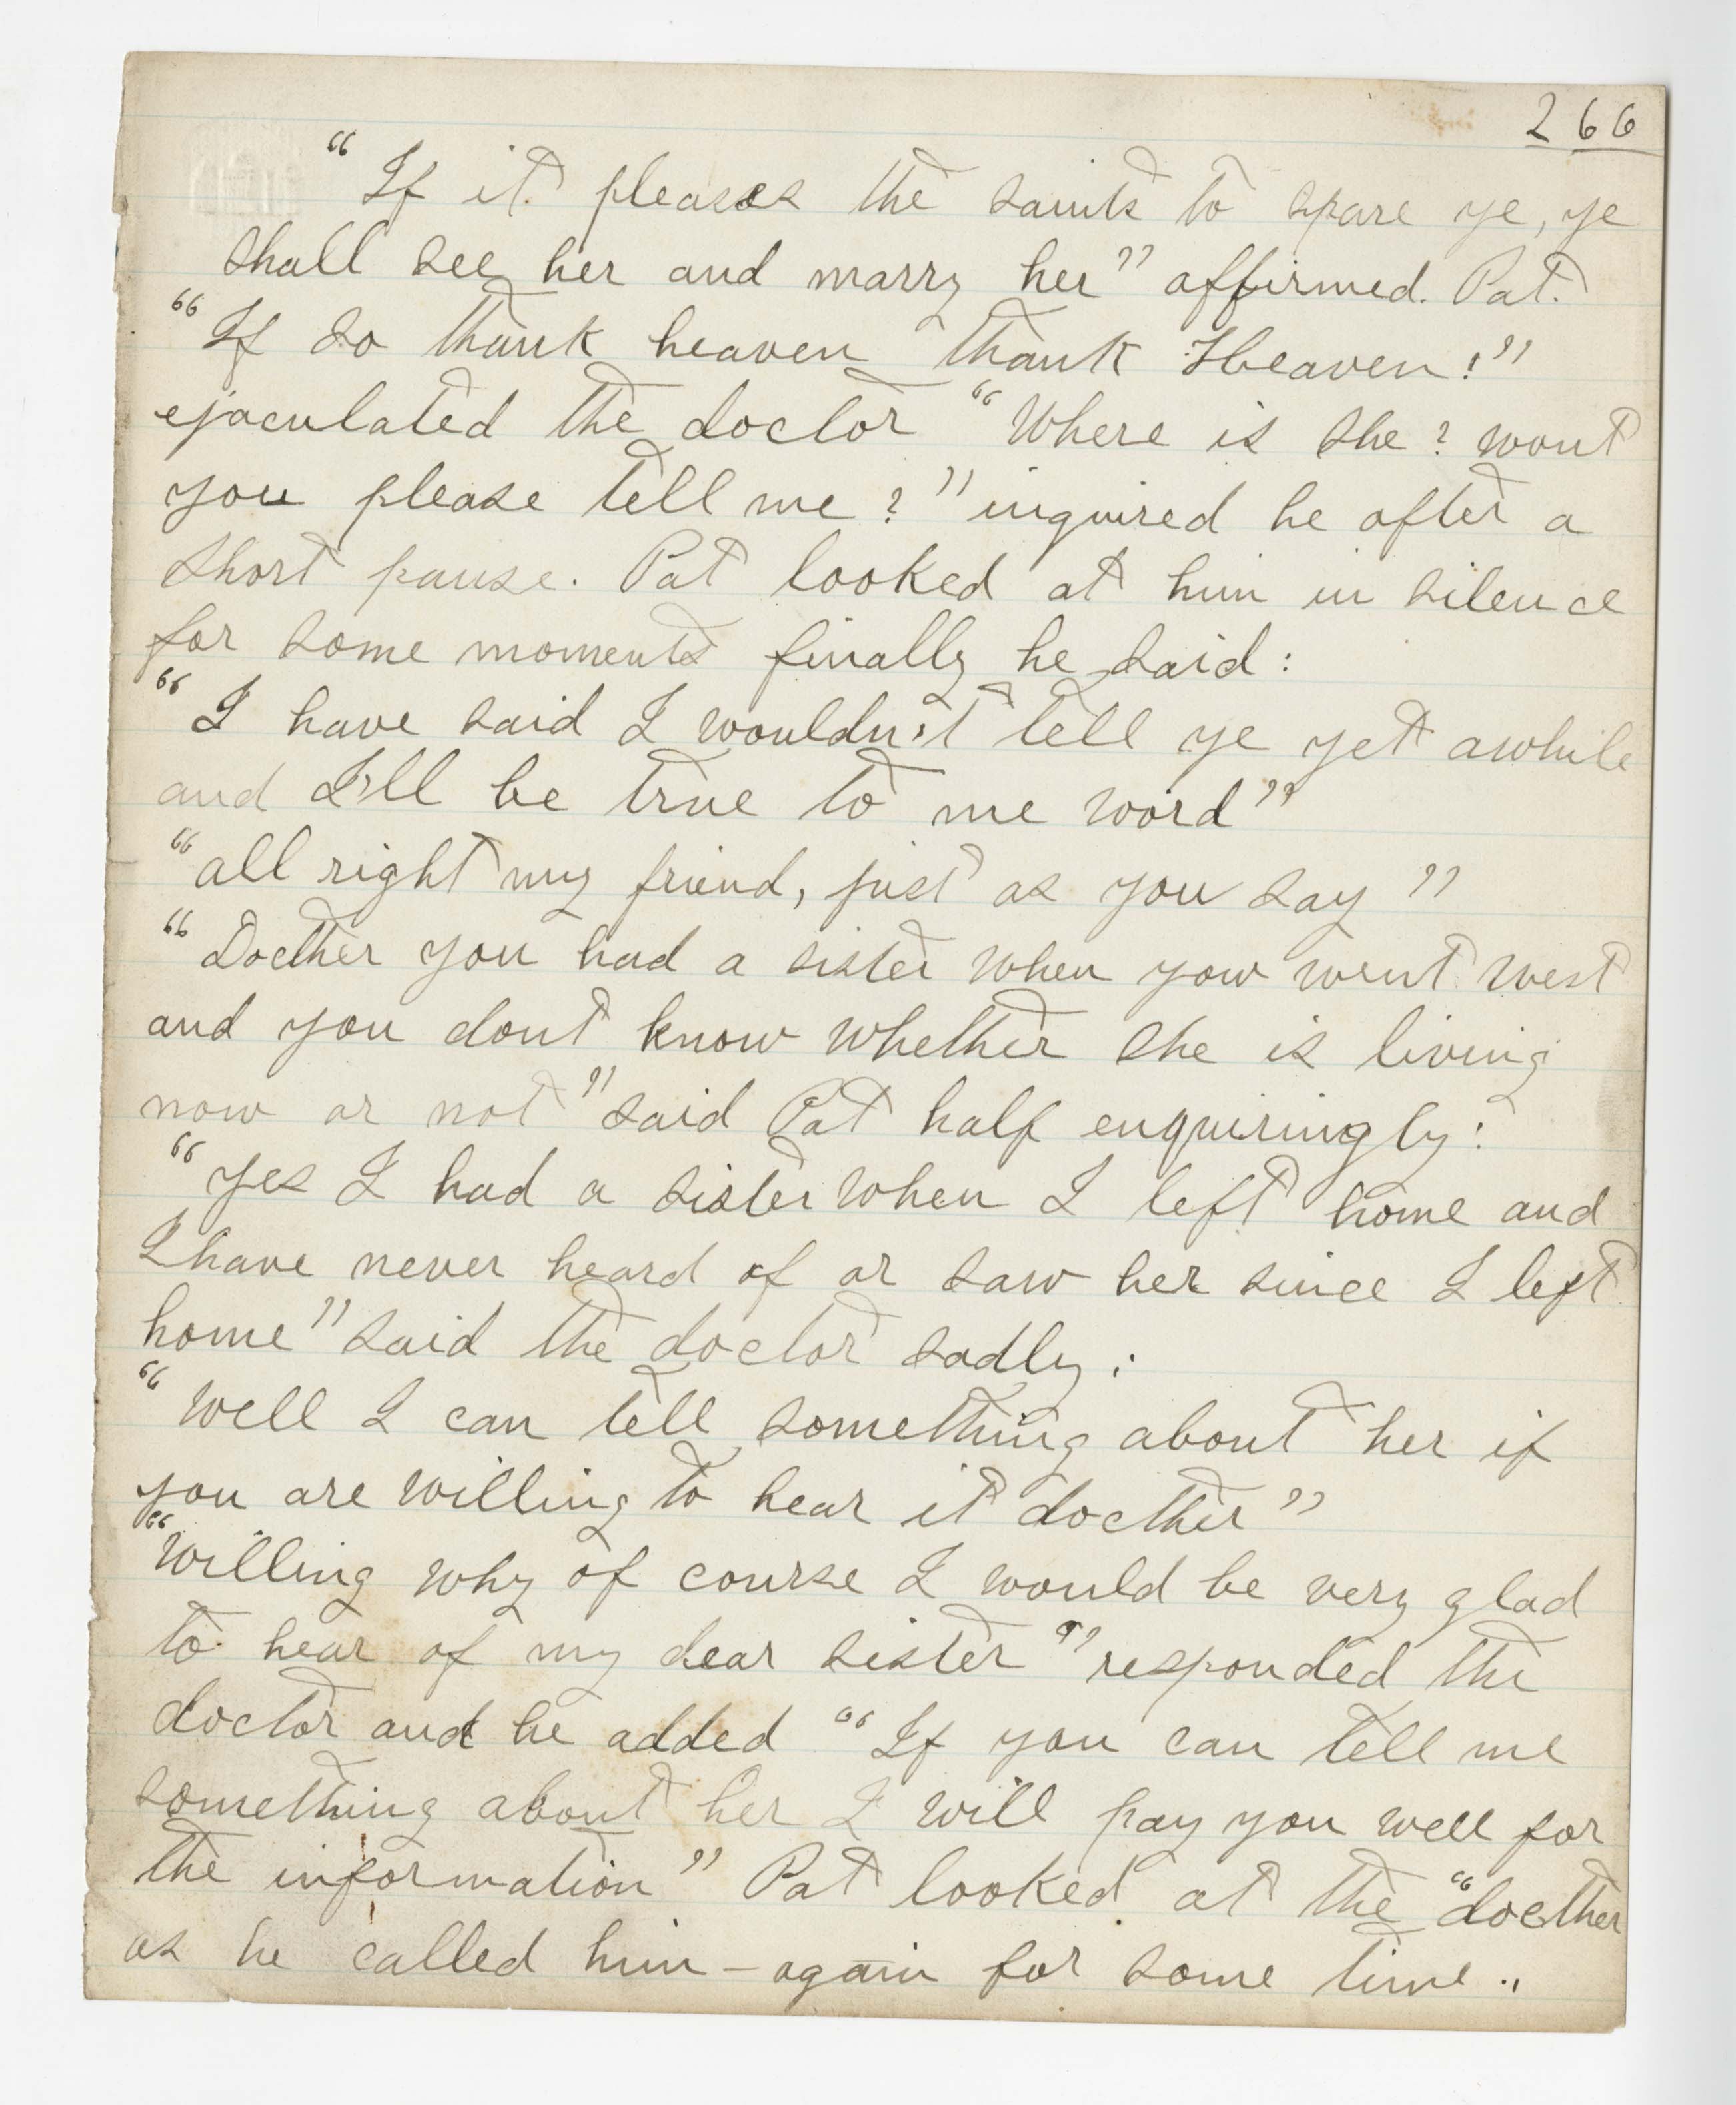 266
“If it. pleases the saints to spare ye, ye
shall see her and marry her” affirmed. Pat.
“If so thank heaven thank Heaven!”
ejaculated the doctor “Where is she? wont
you please tell me?” inquired he after a
short pause. Pat looked at him in silence
for some moments finally he said:
“I have said I wouldn't tell ye yet awhile
and I'll be true to me word”
“all right my friend, just as you say”
“Docther you had a sister when you went west
and you dont know whether she is living
now or not” said Pat half enquiringly:
“yes I had a sister when I left home and
I have never heard of or saw her since I left
home” said the doctor sadly:
“well I can tell something about her if
you are willing to hear it docther”
“willing why of course I would be very glad
to hear of my dear sister” responded the
doctor and he added “If you can tell me
something about her I will pay you well for
the information” Pat looked at the “docther
as he called him – again for some time..